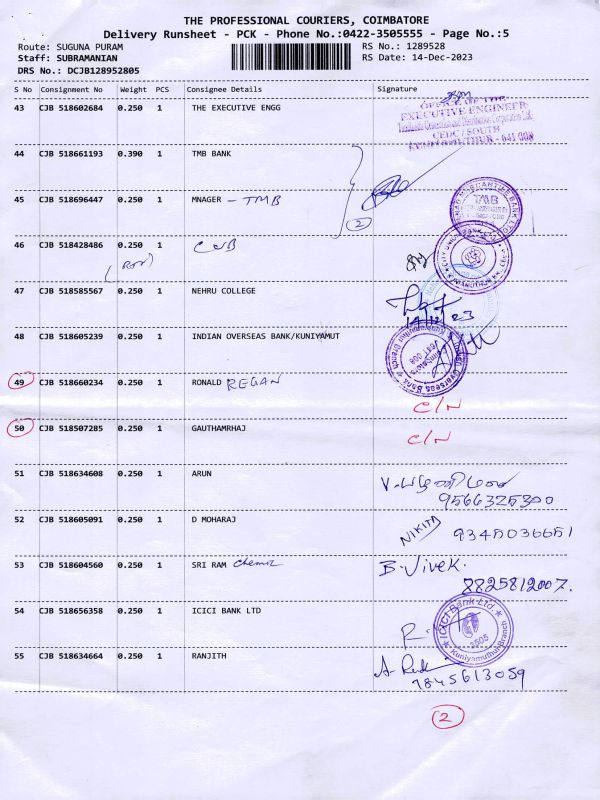 THE PROFESSIONAL COURIERS, COIMBATORE
Delivery Runsheet - PCK - Phone No.:0422-3505555 - Page No.:5
Route: SUGUNA PURAM RS No.: 1289528
Staff: SUBRAMANIAN RS Date: 14-Dec-2023
DRS No.: DCJB128952805
S No Consignment No Weight PCS Consignee Details Signature
43 CJB 518602684 0.250 1 THE EXECUTIVE ENGG
OFFICE OF THE
EXECUTIVE ENGINEER
CEDC / SOUTH
641 008
44 CJB 518661193 0.390 1 TMB BANK
45 CJB 518696447 0.250 1 MNAGER - TMB
2
TMB
46 CJB 518428486 0.250 1 CUB
47 CJB 518585567 0.250 1 NEHRU COLLEGE
14/12/23
48 CJB 518605239 0.250 1 INDIAN OVERSEAS BANK/KUNIYAMUT
Indian Overseas Bank
Kuniamuthur Branch
Coimbatore
641 008
49 CJB 518660234 0.250 1 RONALD REGAN
C/N
50 CJB 518507285 0.250 1 GAUTHAMRHAJ
C/N
51 CJB 518634608 0.250 1 ARUN
9566325300
52 CJB 518605091 0.250 1 D MOHARAJ NIKITA 9345036651
53 CJB 518604560 0.250 1 SRI RAM B. Vivek.
8825812007.
54 CJB 518656358 0.250 1 ICICI BANK LTD
ICICI Bank Ltd.
Kuniyamuthur Branch
55 CJB 518634664 0.250 1 RANJITH
7845613059
2